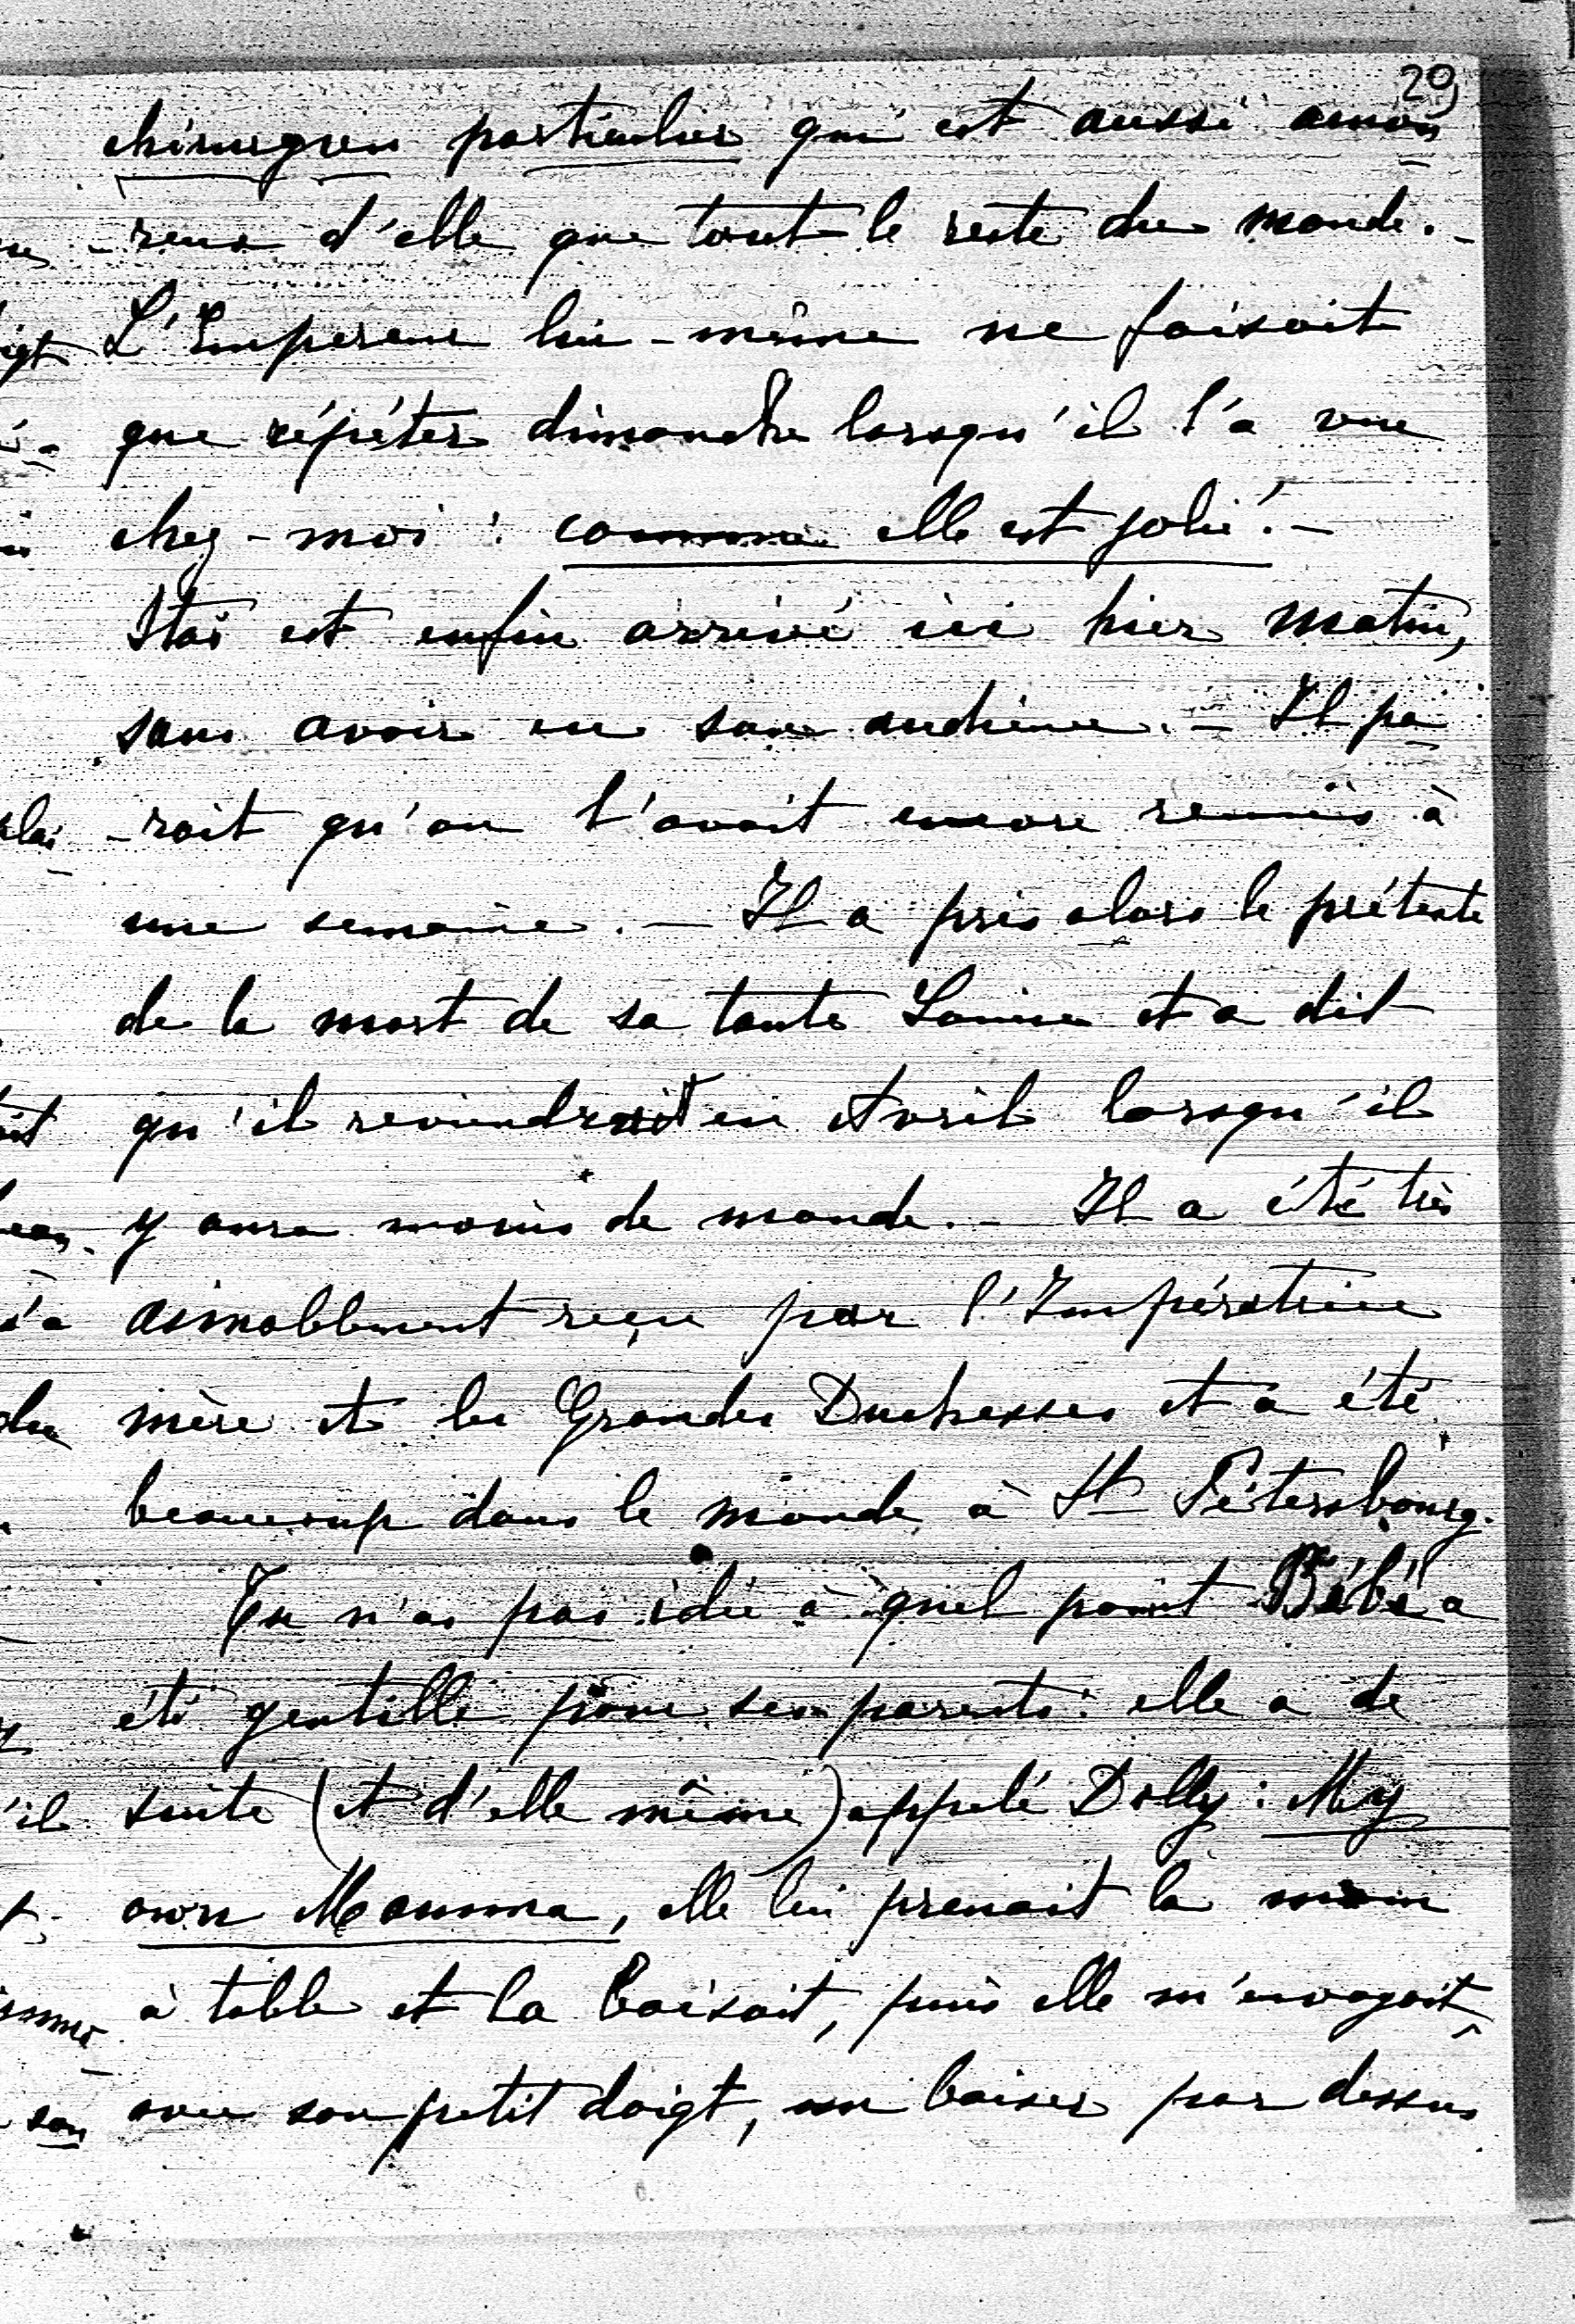 29
chirurgien particulier qui est aussi amou
-reux d'elle que tout le reste du monde. -
L'Empereur lui-même ne faisait
que répéter dimanche lorsqu'il l'a vue
chez-moi : comme elle est jolie! -
Stas est enfin arrivé ici hier matin,
sans avoir eu son audience. - Il pa
-rait qu'on l'avait encore remis à
une semaine. - Il a pris alors le prétexte
de la mort de sa tante Louise et a dit
qu'il reviendrait en Avril lorsqu'il
y aura moins de monde. - Il a été très
aimablement reçu par l'Impératrice
mère et les Grandes Duchesses et a été
beaucoup dans le monde à St Pétersbourg.
Tu n'as pas idée à quel point Bébé a
été gentille pour ses parents: elle a de
suite (et d'elle même) appelé Dolly: My
own Mamma, elle lui prenait la main
à table et la baisait, puis elle m'envoyait,
avec son petit doigt, un baiser par dessus